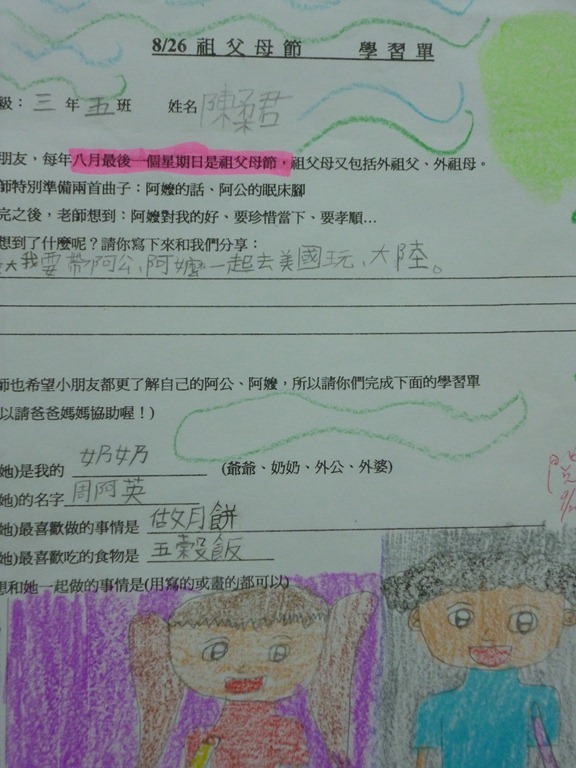 8/26 祖父母節 學習單
級：三年五班 姓名 陳柔君
朋友，每年八月最後一個星期日是祖父母節，祖父母又包括外祖父、外祖母。
師特別準備兩首曲子：阿嬤的話、阿公的眠床腳
完之後，老師想到：阿嬤對我的好、要珍惜當下、要孝順…
想到了什麼呢？請你寫下來和我們分享：
大我要帶阿公、阿嬤一起去美國玩、大陸。
師也希望小朋友都更了解自己的阿公、阿嬤，所以請你們完成下面的學習單
以請爸爸媽媽協助喔！)
她)是我的 奶奶 (爺爺、奶奶、外公、外婆)
她)的名字 周阿英
她)最喜歡做的事情是 做月餅
她)最喜歡吃的食物是 五穀飯
想和她一起做的事情是(用寫的或畫的都可以)